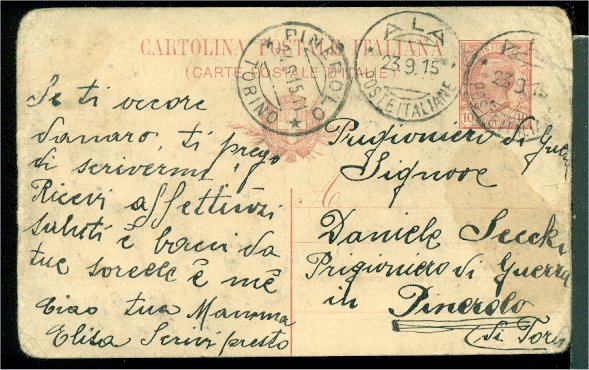 CARTOLINA POSTALE ITALIANA
(CARTE POSTALE D'ITALIE)
PINEROLO
TORINO
ALA
23.9.15
POSTE ITALIANE
23.9.15
10
Se ti occore
danaro, ti prego
di scrivermi
Ricevi affettuosi
saluti è baci da
tue sorelle è mè
Ciao tua Mamma
Elisa Scrivi presto
Prigioniero di
Signore
A
Daniele
Prigioniero di Guerra
in Pinerolo
(di Torin